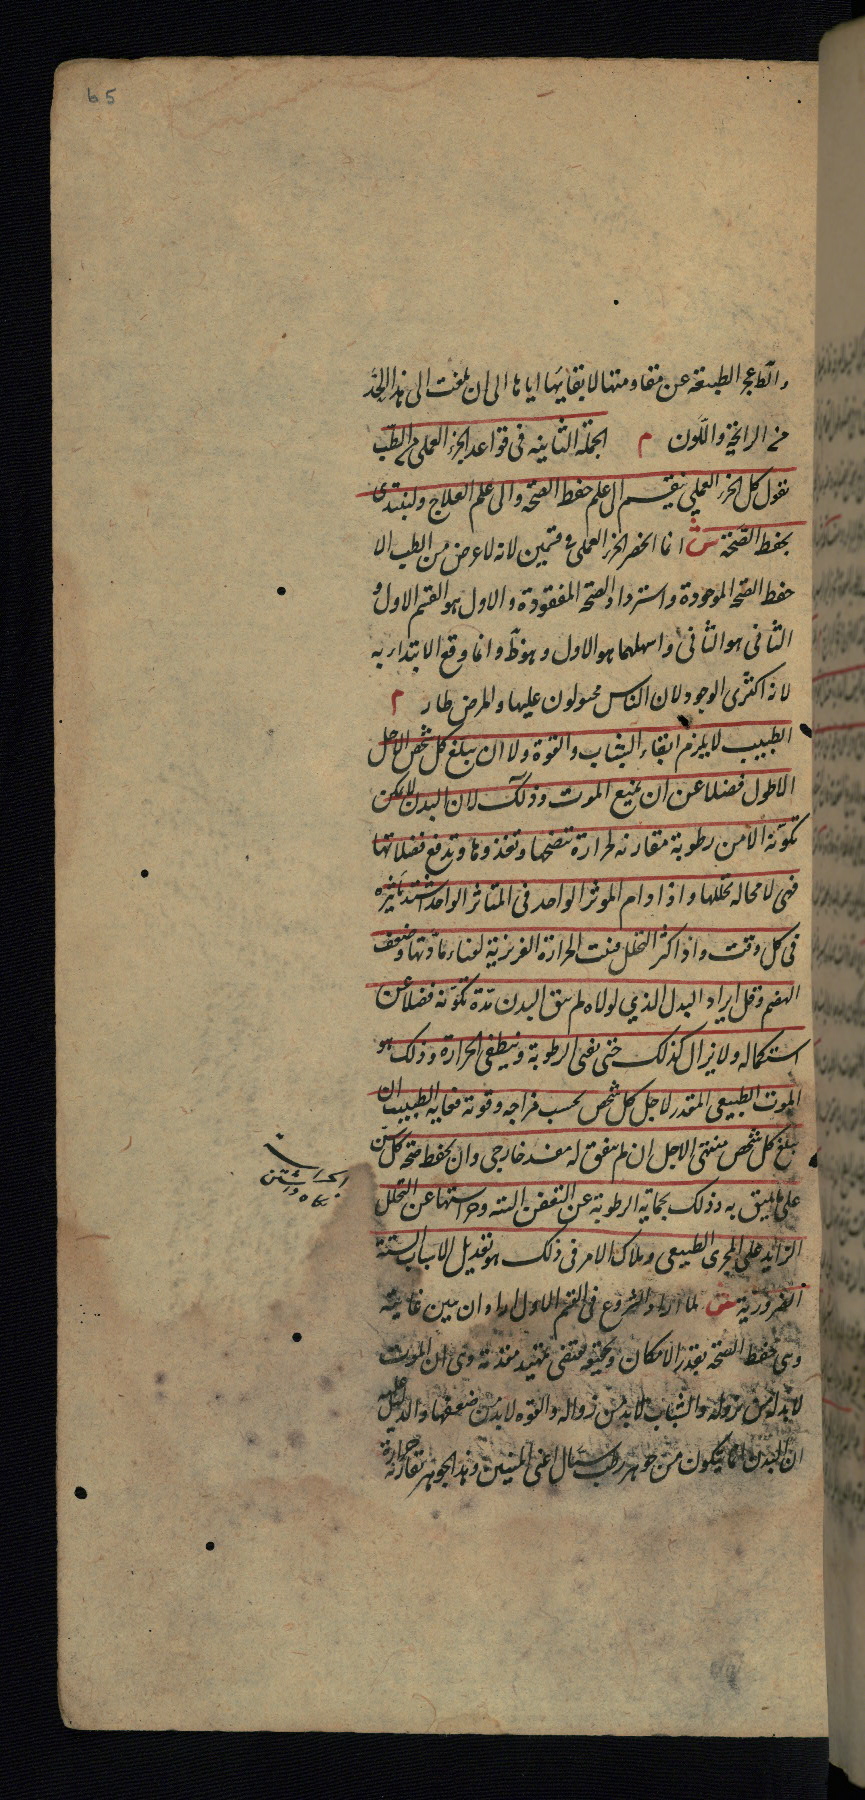 65
والط عجز الطبيعة عن مقاومتها لا بقايها اياها الى ان بلغت الى هذا الحد
من الرايحة واللون م الجملة الثانيه فى قواعد الجزء العملي من الطب
نقول كل الجزء العملي ينقسم الى علم حفظ الصحة والى علم العلاج ولنبتدى
بحفظ الصحة ش انما انحصر الجزء العملى فى قسمين لانه لا غرض من الطب الا
حفظ الصحة الموجودة واسترداد الصحة المفقودة والاول هو القسم الاول و
الثانى هو الثانى واسهلهما هو الاول وهو ظ وانما وقع الابتداء به
لانه اكثرى الوجود لان الناس مجبولون عليها والمرض طار م
الطبيب لا يلزم ابقاء الشباب والقوة ولا ان يبلغ كل شخص الاجل
الاطول فضلا عن ان يمنع الموت وذلك لان البدن لا يمكن
تكونه الا من رطوبة مقارنه لحرارة تنضجها وتغذوها وتدفع فضلاتها
فهى لا محاله تحللها واذا دام الموثر الواحد فى المتاثر الواحد اشتد تاثيره
فى كل وقت واذا كثر التحلل فنت الحرارة الغريزية لفناء مادتها وضعف
الهضم وقل ايراد البدل الذي لولاه لم يبق البدن مدة تكونه فضلا عن
استكماله ولا يزال كذلك حتى تفنى الرطوبة وينطفى الحرارة وذلك هو
الموت الطبيعى المقدر لاجل كل شخص بحسب مزاجه وقوته فغاية الطبيب ان
يبلغ كل شخص منتهى الاجل ان لم يتفق له مفسد خارجى وان يحفظ صحة كل سن
على ما يليق به وذلك بحماية الرطوبة عن التعفن البته وحراستها عن التحلل
الزايد على المجرى الطبيعى وملاك الامر فى ذلك هو تعديل الاسباب الستة
الضرورية ش لما اراد الشروع فى القسم الاول اراد ان يبين غايته
وهى حفظ الصحة بقدر الامكان وتحقيقه يقتضى تمهيد مقدمة وهى ان الموت
لا بد له من نزوله والشباب لا بد من زواله والقوه لا بد من ضعفها والدليل عليه
ان البدن انما يتكون من جوهر رطب سيال اعنى المنيين وهذا الجوهر تقارنه حرارة
نگاه داشتن